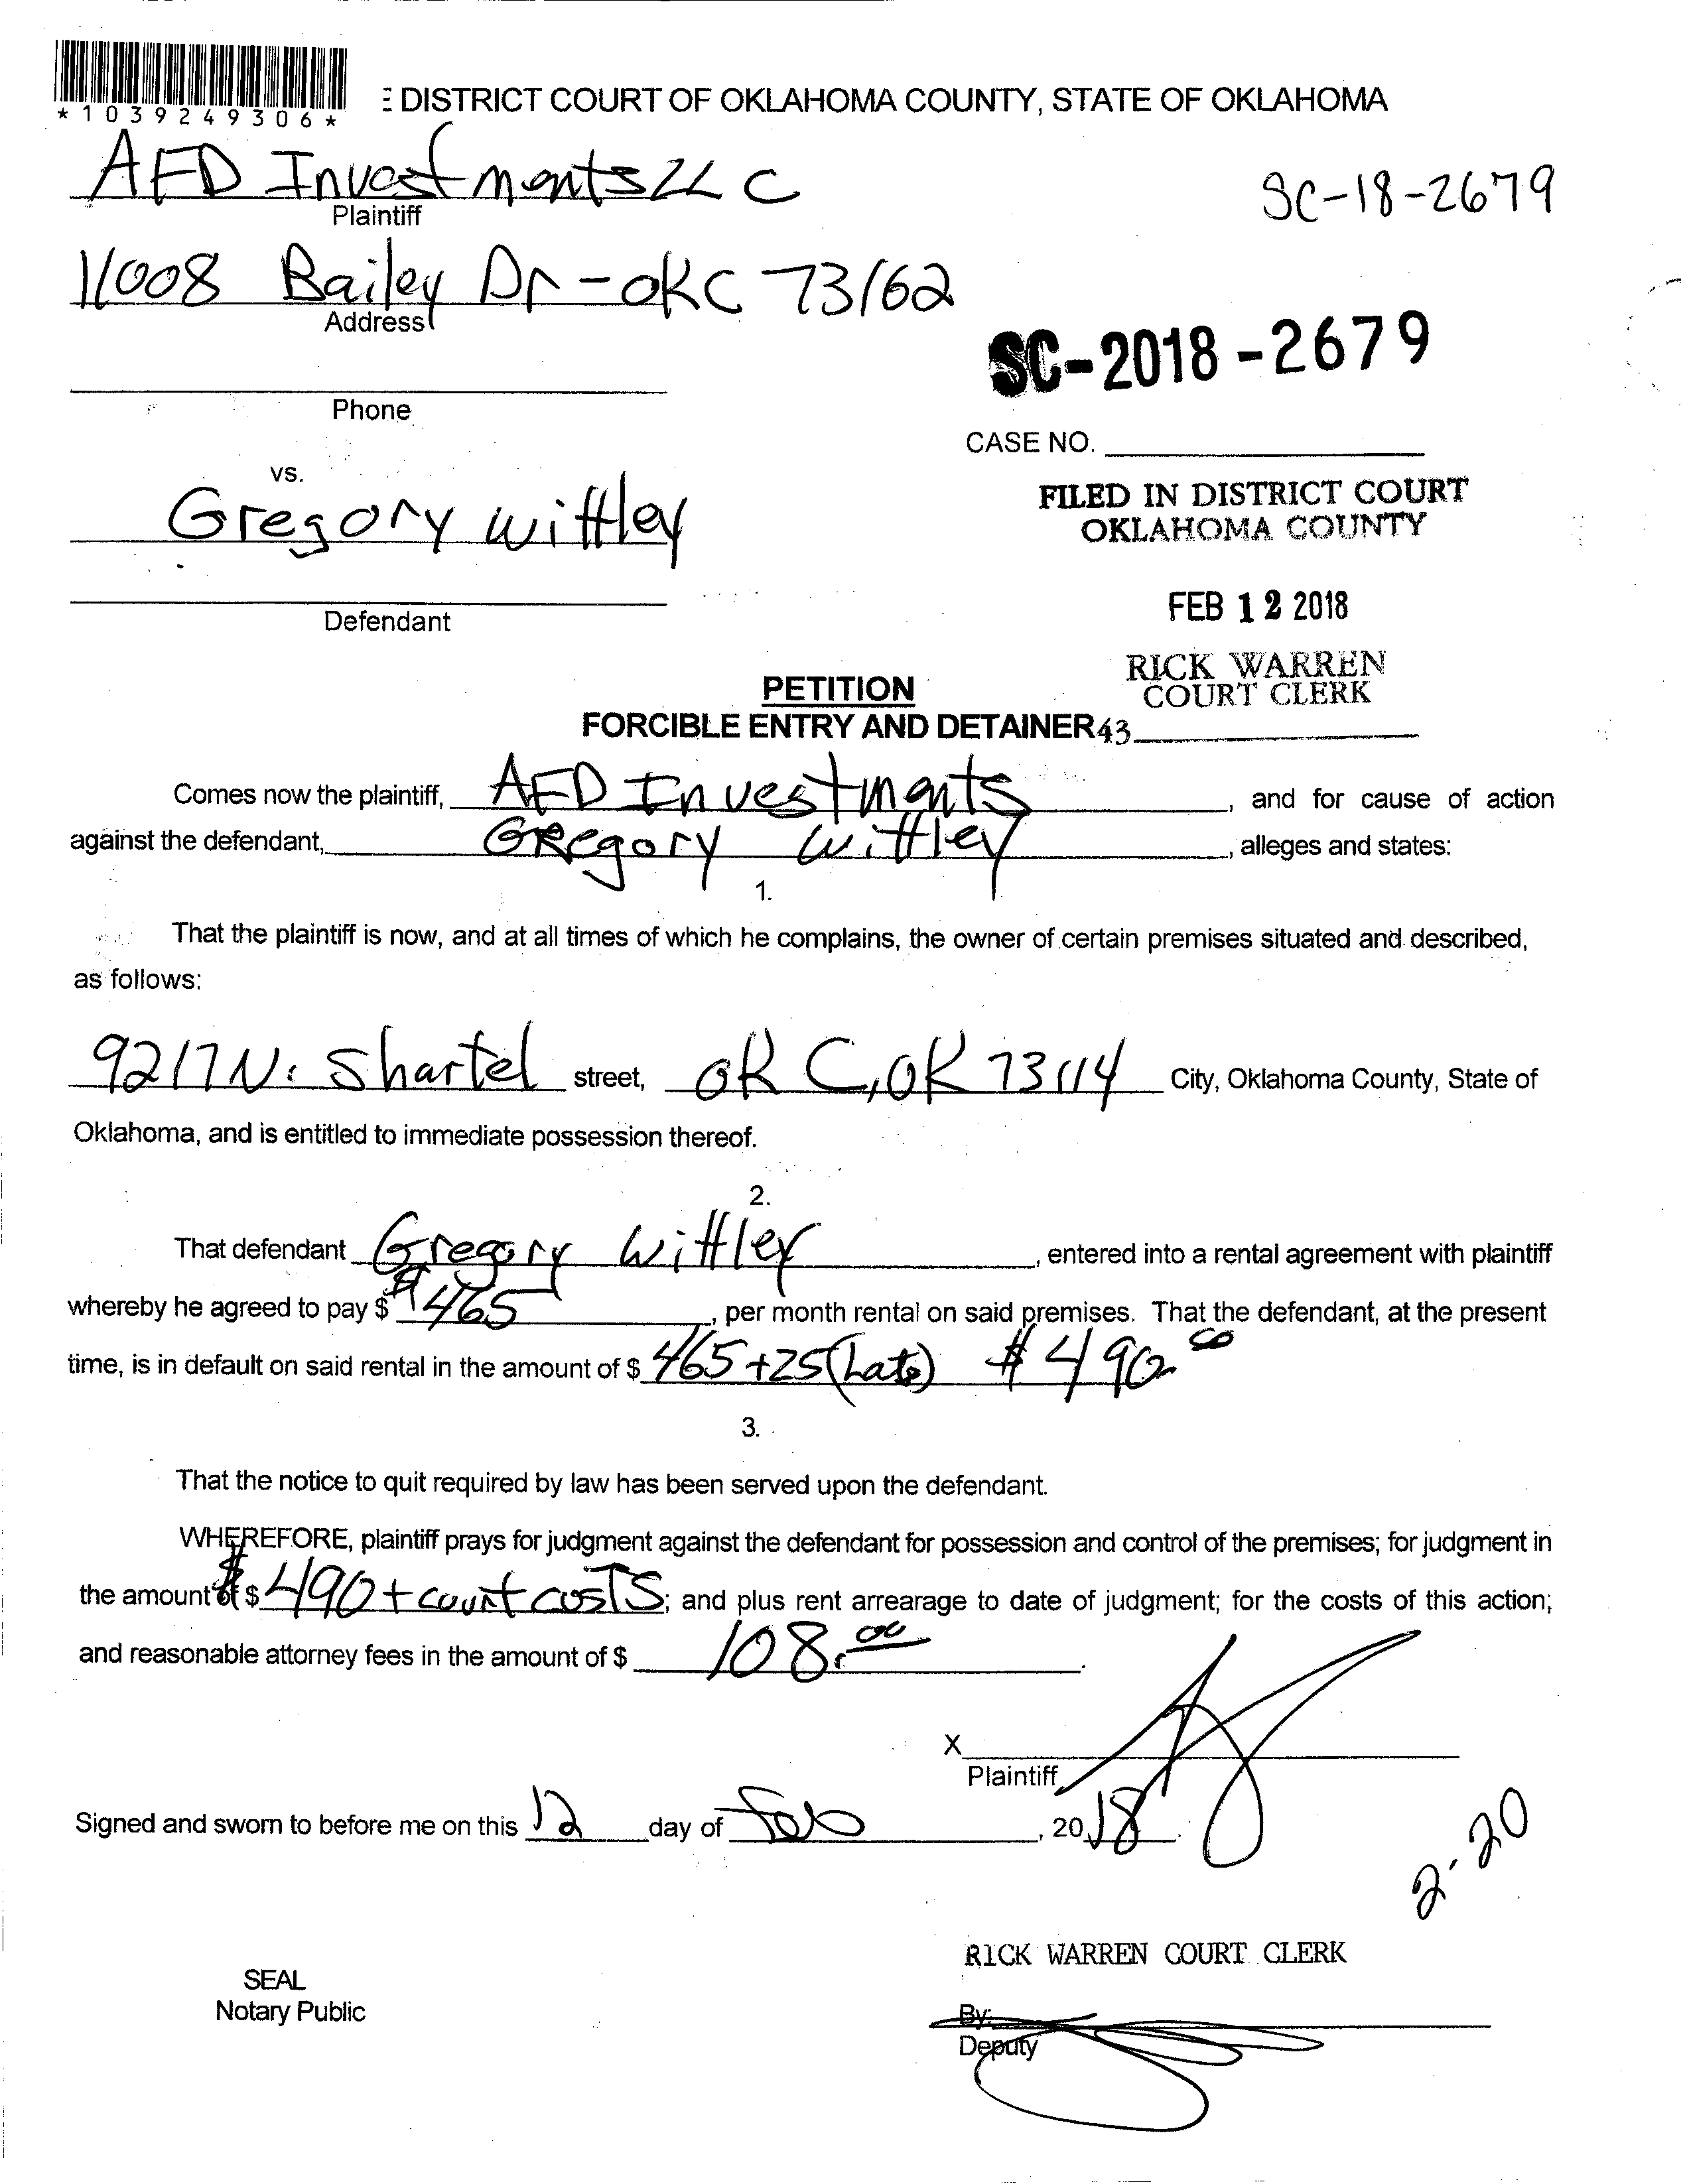 *1039249306*
E DISTRICT COURT OF OKLAHOMA COUNTY, STATE OF OKLAHOMA
AFD Investments LLC
Plaintiff
SC-18-2679
11008 Bailey Dr - OKC 73162
Address
SC-2018-2679
Phone
CASE NO.
vs.
Gregory Wittley
FILED IN DISTRICT COURT
OKLAHOMA COUNTY
Defendant
FEB 12 2018
RICK WARREN
COURT CLERK
PETITION
FORCIBLE ENTRY AND DETAINER 43
Comes now the plaintiff, AFD Investments, and for cause of action
against the defendant, Gregory Wittley, alleges and states:
1.
That the plaintiff is now, and at all times of which he complains, the owner of certain premises situated and described,
as follows:
9217 N. Shartel street, OK C, OK 73114 City, Oklahoma County, State of
Oklahoma, and is entitled to immediate possession thereof.
2.
That defendant Gregory Wittley, entered into a rental agreement with plaintiff
whereby he agreed to pay $ $465, per month rental on said premises. That the defendant, at the present
time, is in default on said rental in the amount of $ 465 + 25 (Late) $490.00
3.
That the notice to quit required by law has been served upon the defendant.
WHEREFORE, plaintiff prays for judgment against the defendant for possession and control of the premises; for judgment in
the amount of $ $490 + court costs; and plus rent arrearage to date of judgment; for the costs of this action;
and reasonable attorney fees in the amount of $ 108.00.
X
Plaintiff
Signed and sworn to before me on this 12 day of Feb, 2018.
2-20
RICK WARREN COURT CLERK
SEAL
Notary Public
By:
Deputy